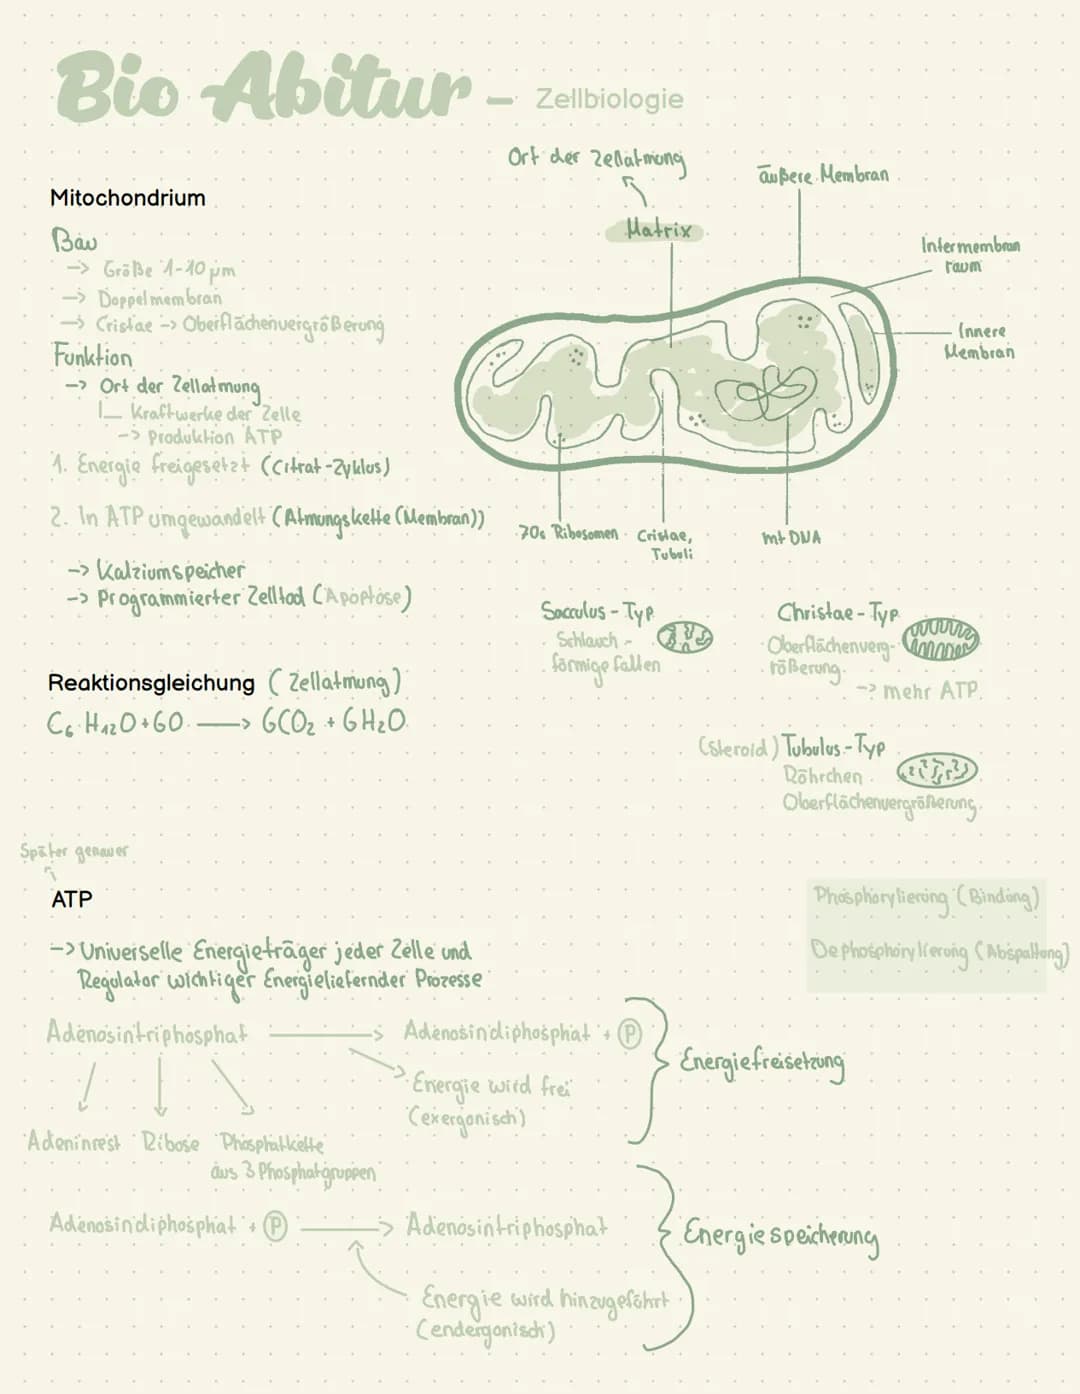 Bio Abitur - Zellbiologie
Mitochondrium
Bau
-> Größe 1-10 µm
-> Doppelmembran
-> Cristae -> Oberflächenvergrößerung
Funktion
-> Ort der Zellatmung
Kraftwerke der Zelle
-> Produktion ATP
1. Energie freigesetzt (Citrat-Zyklus)
2. In ATP umgewandelt (Atmungskette (Membran))
-> Kalziumspeicher
-> Programmierter Zelltod (Apoptose)
Ort der Zellatmung
Matrix
äußere Membran
Intermembran
raum
Innere
Membran
70s Ribosomen
Cristae,
Tubuli
mt DNA
Sacculus-Typ
Schlauch-
förmige falten
Christae-Typ
Oberflächenverg-
rößerung
-> mehr ATP
(Steroid) Tubulus-Typ
Röhrchen
Oberflächenvergrößerung
Reaktionsgleichung (Zellatmung)
C₆ H₁₂O+6O ⟶ 6CO₂ + 6H₂O
Später genauer
ATP
-> Universelle Energieträger jeder Zelle und
Regulator wichtiger Energieliefernder Prozesse
Phosphorylierung (Bindung)
Dephosphorylierung (Abspaltung)
Adenosintriphosphat ⟶ Adenosindiphosphat + P
Energie wird frei
(exergonisch)
Energiefreisetzung
Adeninrest Ribose Phosphatkette
aus 3 Phosphatgruppen
Adenosindiphosphat + P ⟶ Adenosintriphosphat
Energie wird hinzugeführt
(endergonisch)
Energiespeicherung